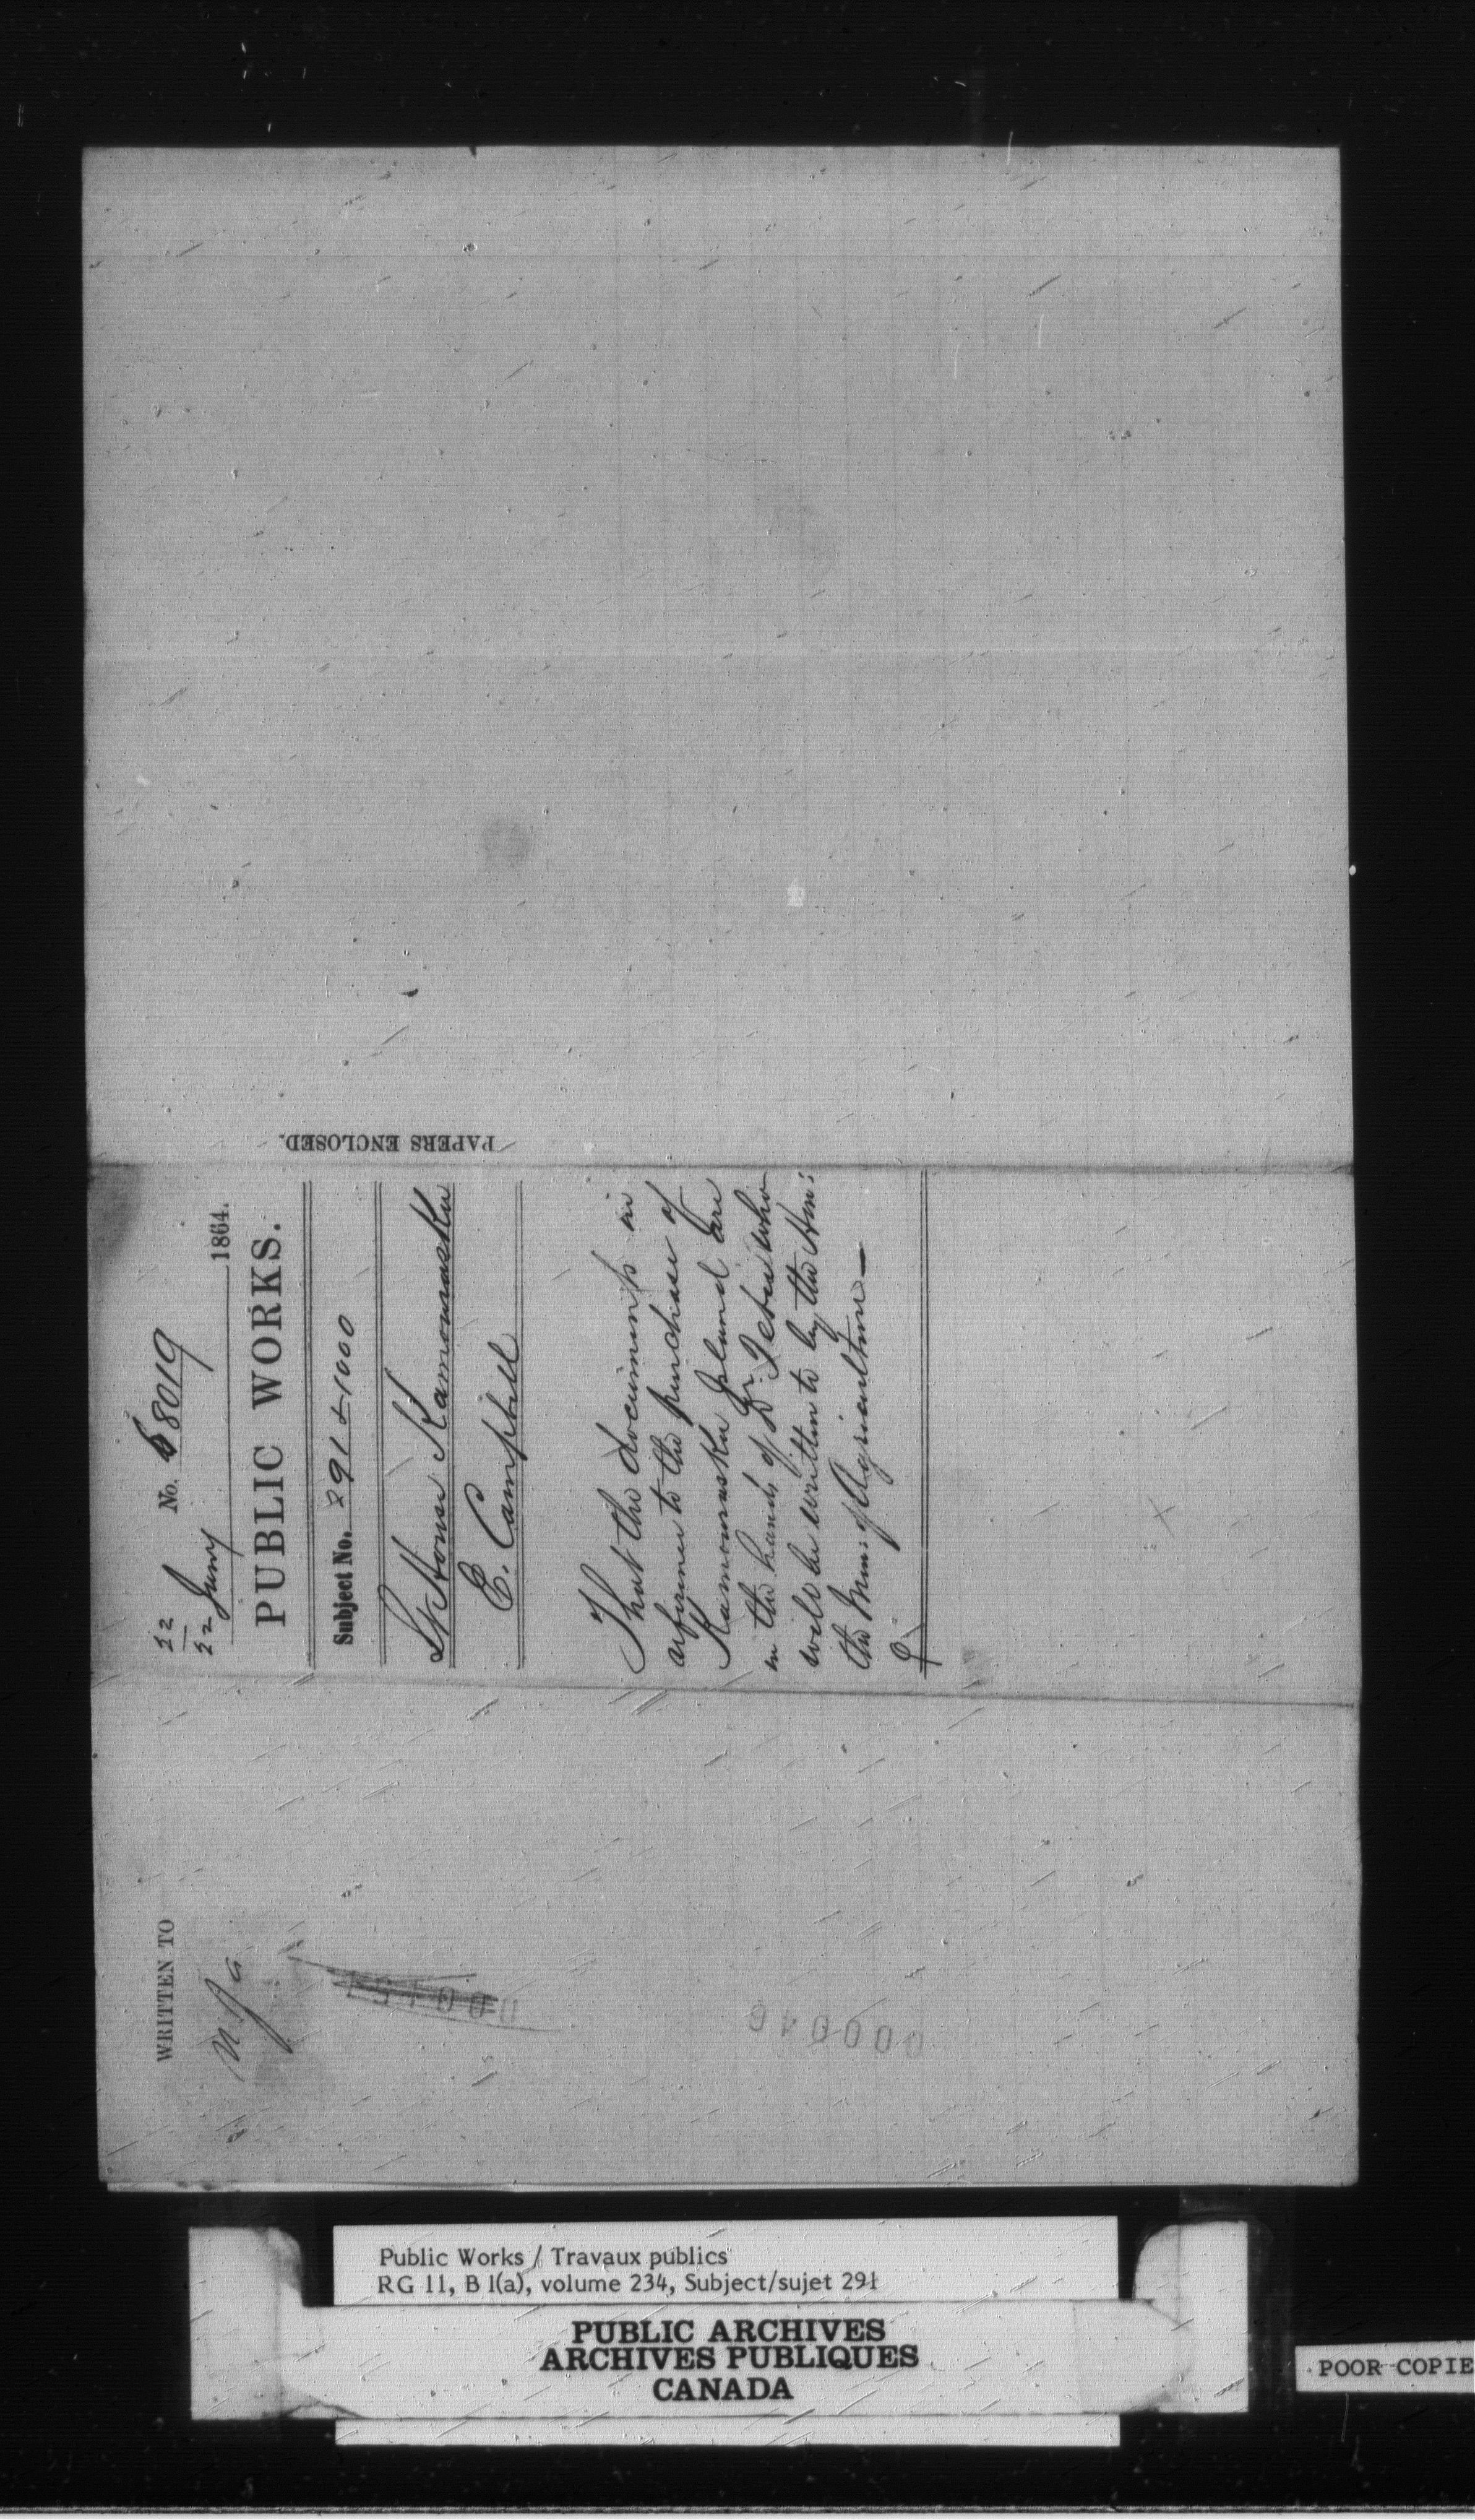 22
22 Juny No. 68019 1864.
PUBLIC WORKS.
Subject No. 291 & 1000
Lt House Kamouraska
E. Campbell
That the documents in
reference to the purchase of
Kamouraska Island are
in the hands of Dr. Tetu who
will be written to by the Hon:
the Min: of Agriculture —
PAPERS ENCLOSED.
WRITTEN TO
000151
000046
Public Works / Travaux publics
RG 11, B 1(a), volume 234, Subject/sujet 291
PUBLIC ARCHIVES
ARCHIVES PUBLIQUES
CANADA
POOR COPIE